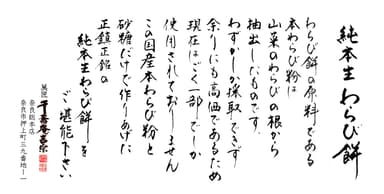 純本生わらび餅
わらび餅の原料である
本わらび粉は
山菜のわらびの根から
抽出したものです。
わずかしか採取できず
余りにも高価であるため
現在はごく一部でしか
使用されておりません
この国産本わらび粉と
砂糖だけで作りあげた
正真正銘の
純本生わらび餅を
ご堪能下さい
奈良総本店
奈良市押上町三九番地一